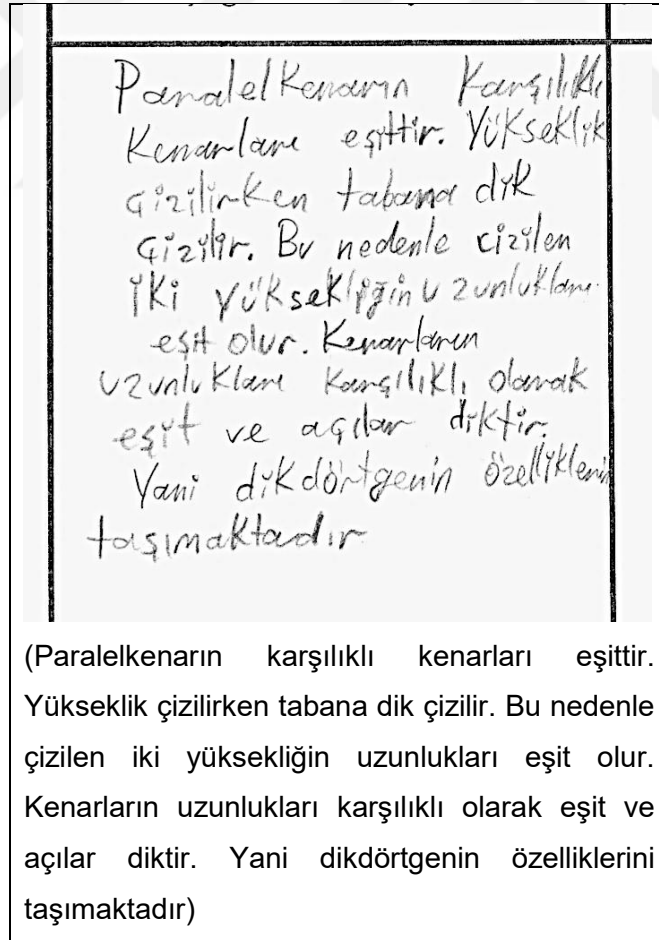 Paralelkenarın Karşılıklı
Kenarları eşittir. Yükseklik
çizilirken tabana dik
çizilir. Bu nedenle cizilen
iki yüksekliğin uzunlukları
eşit olur. Kenarların
uzunlukları karşılıklı olarak
eşit ve açılar diktir.
Yani dikdörtgenin özelliklerini
taşımaktadır
(Paralelkenarın karşılıklı kenarları eşittir.
Yükseklik çizilirken tabana dik çizilir. Bu nedenle
çizilen iki yüksekliğin uzunlukları eşit olur.
Kenarların uzunlukları karşılıklı olarak eşit ve
açılar diktir. Yani dikdörtgenin özelliklerini
taşımaktadır)